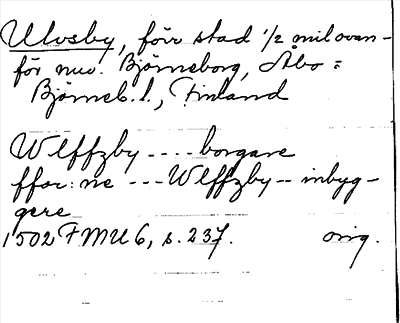 Ulvsby, förr stad 1/2 mil ovan-
för nuv. Björneborg, Åbo=
Björneb. l., Finland
Wlffzby ---- borgare
ffar: ne --- Wlffzby -- inbyg-
gere
1502 FMU 6, s. 237. orig.